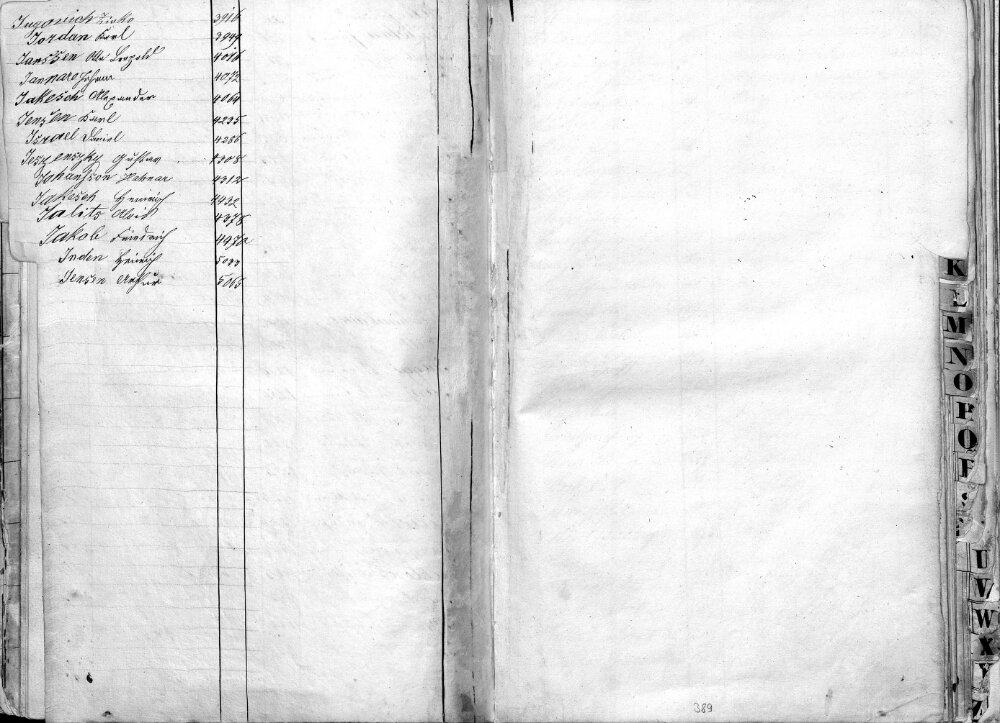 Jugovich Zivko 3916
Jordan Karl 3999
Janszen Leopold 4016
Jannaro Johann 4072
Jakesch Alexander 4064
Jensen Karl 4235
Israel Daniel 4286
Jeszenszky Gustav 4308
Johansson 4312
Jakesch Heinrich 4932
Jalits Alois 4978
Jakob Friedrich 4970a
Inden Heinrich
Jensen Arthur 5065
K
L
M
N
O
P
Q
R
S
U
V
W
X
Y
Z
389